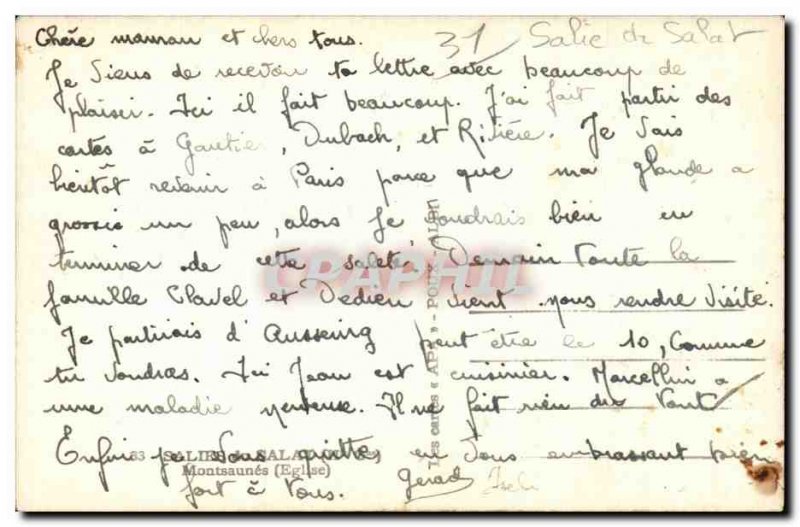 Chère maman et chers tous. 31 Salie du Salat
Je viens de recevoir ta lettre avec beaucoup de
plaisir. Ici il fait beaucoup. J'ai fait partir des
cartes à Gautier, Dubach, et Rivière. Je vais
bientôt revenir à Paris parce que ma glande a
grossie un peu, alors je voudrais bien en
terminer de cette saleté. Demain toute la
famille Clavel et Dedieu vient nous rendre visite.
Je partirais d'Ausseing peut être le 10, Comme
tu voudras. Ici Jean est cuisinier. Marcellin a
une maladie nerveuse. Il ne fait rien du tout
Enfin je vous quitte en vous embrassant bien
fort à tous. Gérard
83 SALIES SALAT
Montsaunés (Eglise)
Les cartes « APA » - POUX - ALBI
CPAPHIL